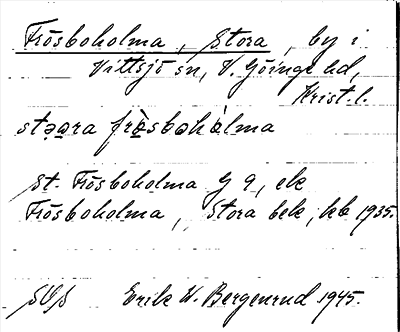 Frösboholma, Stora, by i
Vittsjö sn, V. Göinge hd,
Krist. l.
stǝɑra frø̀sbohólma
St. Frösboholma G 9, ek
Frösboholma, Stora bek, kb 1935.
SOS Erik W. Bergenrud 1945.